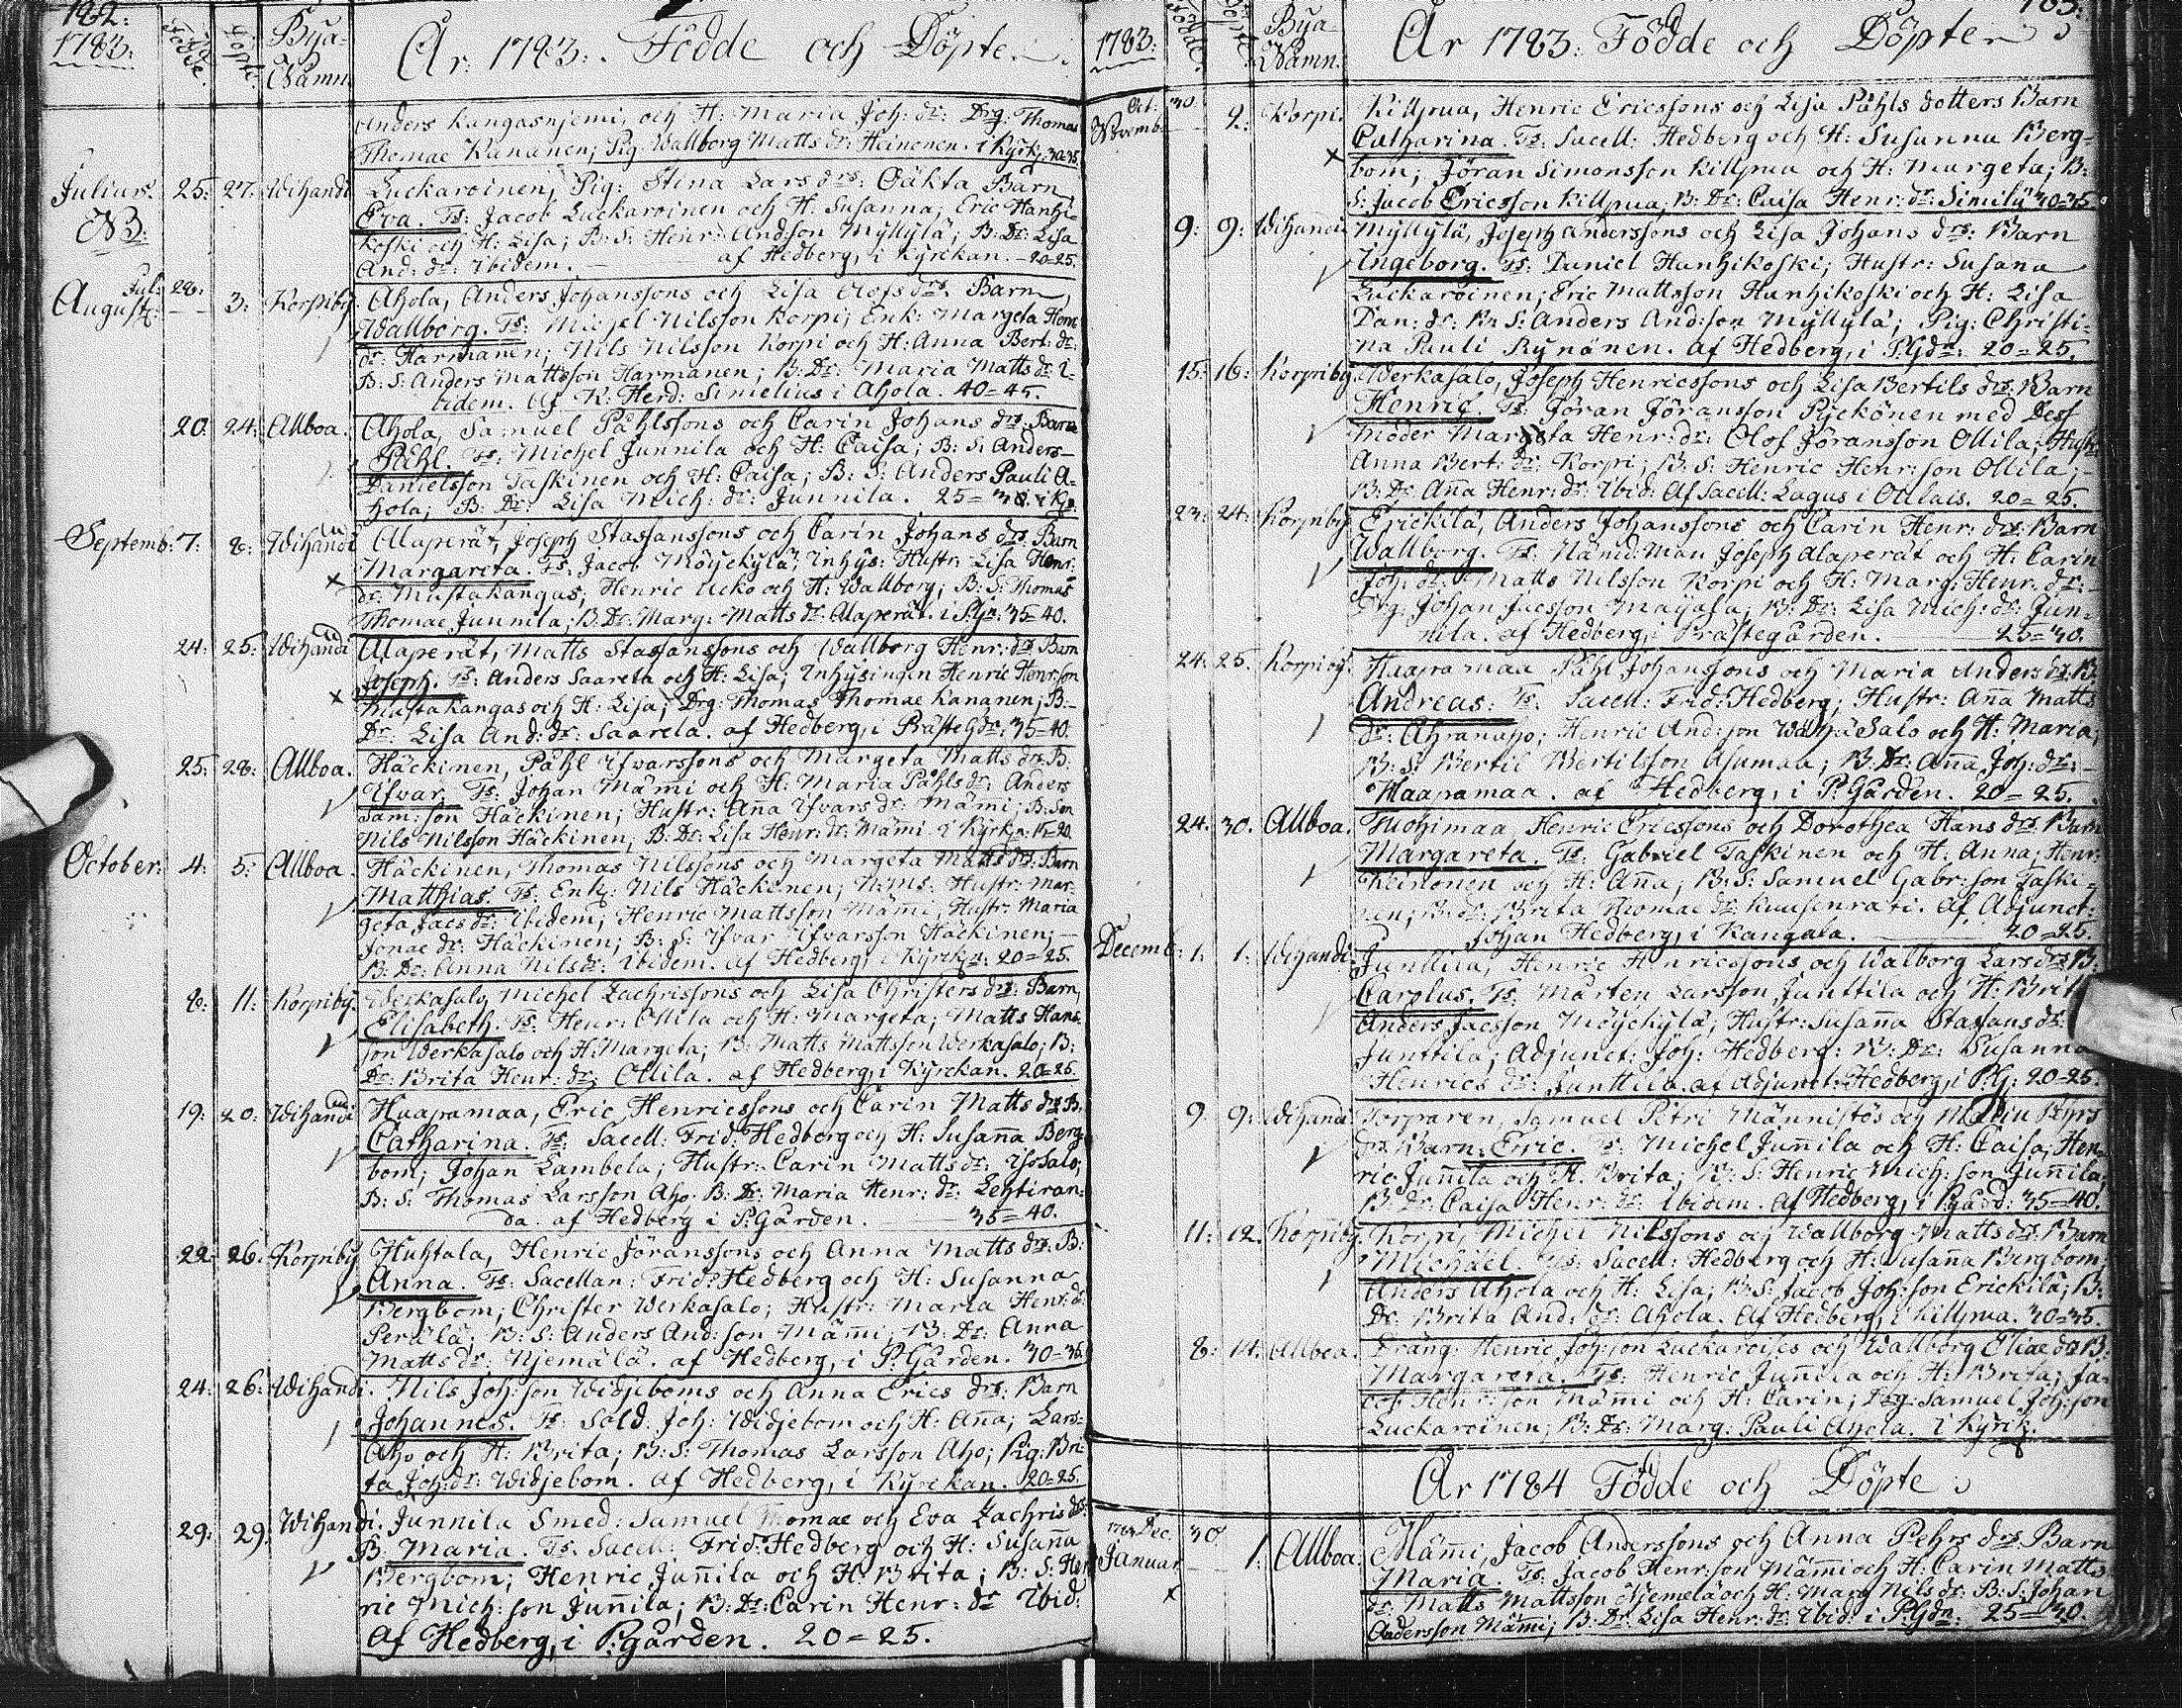 182:
1783. Födde. Döpte. Bya-Namn. År: 1783: Födde och Döpte.
Anders Kangasnjemi, och H: Maria Joh: dr: Drg: Thomas
Thomae Kananen; Pig. Wallborg Matts dr: Heinonen. i Kyrk: 30=35.
Julius. 25: 27: Wihandi Luckaroinen, Pig: Stina Lars drs: Oäkta Barn
NB: Eva. Ts: Jacob Luckaroinen och H: Susanna; Eric Hanhi-
koski och H: Lisa; B: S: Henr: And:son Myllylä; B: Dr: Lisa
And: dr: ibidem. af Hedberg, i Kyrckan. 20=25.
Jul: 28.
August: 3: Korpiby. Ahola, Anders Johanssons och Lisa Olofs drs. Barn
Wallborg. Ts: Michel Nilsson Korpi; Enk: Margeta Hem
dr: Harmanen; Nils Nilsson Korpi och H: Anna Bert: dr:
B: S: Anders Mattsson Harmanen; B: Dr: Maria Matts dr i-
bidem. Af K: Herd: Simelius i Ahola. 40=45.
20. 24: Allboa. Ahola, Samuel Påhlssons och Carin Johans drs. Barn
Påhl. Ts: Michel Junnila och H: Caisa; B: S: Anders
Danielsson Taskinen och H: Caisa; B: S: Anders Pauli A-
hola; B: Dr: Lisa Mich: dr: Junnila. 25=30. i Kg.
Septemb: 7: 8: Wihandi Alaperät, Joseph Staffanssons och Carin Johans drs. Barn
Margareta. Ts. Jacob Möyckylä; Inhys: Hustr: Lisa Henr:
dr: Mustakangas; Henric Ucko och H: Wallborg; B: S: Thomas
Thomae Junnila; B: Dr: Marg: Matts dr Alaperät. i P:Gn: 35=40.
24: 25: Wihandi Alaperät, Matts Staffanssons och Wallborg Henr: drs Barn
Joseph. Ts: Anders Saareta och H: Lisa; Inhysingen Henric Henr:son
Mustakangas och H: Lisa; Drg: Thomas Thomae Kananen; B:
Dr: Lisa And: dr: Saarela. af Hedberg, i PrästeGdn: 35=40.
25: 28: Allboa. Häckinen, Påhl Ifvarssons och Margeta Matts drs B:
Ifvar. Ts: Johan Mämi och H: Maria Påhls dr: Anders
Sam:son Häckinen; Hustr: Ana Ifvars dr: Mämi; B: Son
Nils Nilsson Häckinen, B: Dr: Lisa Henr: dr: Mämi. i Kyrkn: 15=20.
October: 4: 5: Allboa. Häckinen, Thomas Nilssons och Margeta Matts drs: Barn
Matthias. Ts: Enk: Nils Häckinen; Hustr: Mar-
geta Jacs dr: ibidem; Henric Mattsson Mämi, Hustr: Maria
Jonae dr: Häckinen; B: S: Ifvar Ifvarsson Häckinen;
B: Dr: Anna Nils dr: ibidem. af Hedberg, i Kyrckn: 20=25.
8: 11: Korpiby. Werkasalo, Michel Zachrissons och Lisa Christers drs: Barn,
Elisabeth. Ts: Henr: Ollila och H: Margeta; Matts Hans-
son Werkasalo och H: Margeta; B: Matts Mattsson Werkasalo; B:
Dr: Brita Henr: dr: Ollila. af Hedberg, i Kyrckan. 20=25.
19: 20: Wihandi Haapamaa, Eric Henricssons och Carin Matts drs B.
Catharina. Ts: Sacell: Frid: Hedberg och H: Susana Berg-
bom; Johan Lambela; Hustr: Carin Matts dr: Isosalo;
B: S: Thomas Larsson Aho. B: Dr: Maria Henr: dr: Lehtiran-
da. af Hedberg i P:Gården. 35=40.
22: 26: Korpiby. Huhtala, Henric Jöranssons och Anna Matts drs: B:
Anna. Ts: Sacellan: Frid: Hedberg och H: Susanna
Bergbom; Christer Werkasalo; Hustr: Maria Henr: dr:
Perälä; B: S: Anders And:son Mämi; B: Dr: Anna
Matts dr: Njemälä. af Hedberg, i P:Gården. 30=35.
24: 26: Wihandi. Nils Joh:son Widjeboms och Anna Erics drs: Barn
Johannes. Ts: Sold: Joh: Widjebom och H: Ana; Lars
Aho och H: Brita; B: S: Thomas Larsson Aho; Pig: Bri-
ta Joh: dr: Widjebom. af Hedberg, i Kyrckan. 20=25.
29: 29. Wihandi: Junnila Smed: Samuel Thomae och Eva Zachris drs:
B: Maria. Ts: Sacell: Frid: Hedberg och H: Susana
Bergbom; Henric Junila och H: Brita; B: S: Hen
ric Mich: son Junila; B: Dr: Carin Henr: dr ibid:
Af Hedberg, i P:gården. 20=25.
183:
1783: Födde. Döpte. Bya-Namn. År 1783: Födde och Döpte
Oct: 30.
Novemb: 2: Korpi. Killpua, Henric Ericssons och Lisa Påhls dotters Barn
Catharina. Ts: Sacell: Hedberg och H: Susanna Berg-
bom; Jöran Simonsson Killpua och H: Margeta; B:
S: Jacob Ericsson Killpua; B: Dr: Caisa Henr: dr: Similä 30=35.
9: 9: Wihandi. Myllylä, Joseph Anderssons och Lisa Johans drs: Barn
Ingeborg. Ts: Daniel Hanhikoski; Hustr: Susana
Luckaroinen; Eric Mattsson Hanhikoski och H: Lisa
Dan: dr: B: S: Anders And:son Myllylä; Pig: Christi-
na Pauli Kynänen. Af Hedberg, i P:Gdn: 20=25.
15: 16: Korpiby. Werkasalo, Joseph Henricssons och Lisa Bertils drs: Barn
Henric. Ts: Jöran Jöransson Pyckönen med Dess
moder Margeta Henr: dr: Olof Jöransson Ollila; Hustr:
Anna Bert: dr: Korpi; B: S: Henric Henr:son Ollila;
B: Dr: Ana Henr: dr: ibid: Af Sacell: Lagus i Oulais. 20=25.
23: 24: Korpiby. Erickilä, Anders Johanssons och Carin Henr: drs: Barn
Wallborg. Ts: Nämd:Man Joseph Alaperät och H: Carin
Joh: dr: Matts Nilsson Korpi och H: Marg: Henr: dr:
Drg: Johan Jacsson Maijala; B: Dr: Lisa Mich: dr: Jun-
nila. af Hedberg, i Prästegården. 25=30.
24: 25. Korpiby. Haapamaa Påhl Johanssons och Maria Anders drs B.
Andreas: Ts: Sacell: Frid: Hedberg; Hustr: Ana Matts
dr: Ahranaho; Henric And:son Wähäsalo och H: Maria;
B: S: Bertil Bertilsson Asumaa; B: Dr: Ana Joh: dr:
Haapamaa. af Hedberg, i P:Gården. 20=25.
24: 30. Allboa. Mohimaa, Henric Ericssons och Dorothea Hans drs: Barn
Margareta. Ts: Gabriel Taskinen och H: Anna; Henr:
Keinonen och H: Ana; B: S: Samuel Gabr:son Taski-
nen; B: dr: Brita Thomae dr: Kuusenrati. Af Adjunct:
Johan Hedberg, i Kangala. 20=25.
Decemb: 1: 1: Wihandi: Junttila, Henric Henricssons och Walborg Lars drs B:
Carolus. Ts: Mårten Larsson Junttila och H: Brit
Anders Jacsson Möyckylä; Hustr: Susana Staffans dr:
Junttila; Adjunct: Joh: Hedberg: B: Dr: Susanna
Henrics dr: Junttila. af Adjunct: Hedberg, i P:G: 20=25.
9. 9: Wihandi. Torparen, Samuel Petri Männistös och
drs Barn: Eric. Ts: Michel Junila och H: Caisa, Hen-
ric Junila och H. Brita; B: S: Henric Mich: son Junila,
B: Dr: Caisa Henr: dr: ibidem. Af Hedberg, i P:Gård: 35=40.
11: 12. Korpiby. Korpi, Michel Nilssons och Wallborg Matts drs Barn
Michäel. Ts: Sacell: Hedberg och H: Susana Bergbom;
Anders Ahola och H: Lisa; B: S: Jacob Joh:son Erickilä; B:
Dr: Brita And: dr: Ahola. Af Hedberg, i Killpua. 30=35.
8: 14: Allboa. Dräng: Henric Joh:son Luckaroises och Wallborg Eliae drs B:
Margareta. Ts: Henric Junila och H: Brita; Ja-
cob Henr:son Mämi och H: Carin; Drg: Samuel Joh:son
Luckaroinen; B: Dr: Marg: Pauli Ahola. i Kyrck.
År 1784 Födde och Döpte
1783 Dec. 30
Januar. 1: Allboa. Mämi, Jacob Anderssons och Anna Pehrs drs Barn
Maria. Ts: Jacob Henr:son Mämi och H: Carin Matts
dr: Matts Mattsson Njemelä och H: Marg Nils dr: B: S: Johan
Andersson Mämi; B: Dr: Lisa Henr: dr: ibid: i P:Gdn: 25=30.